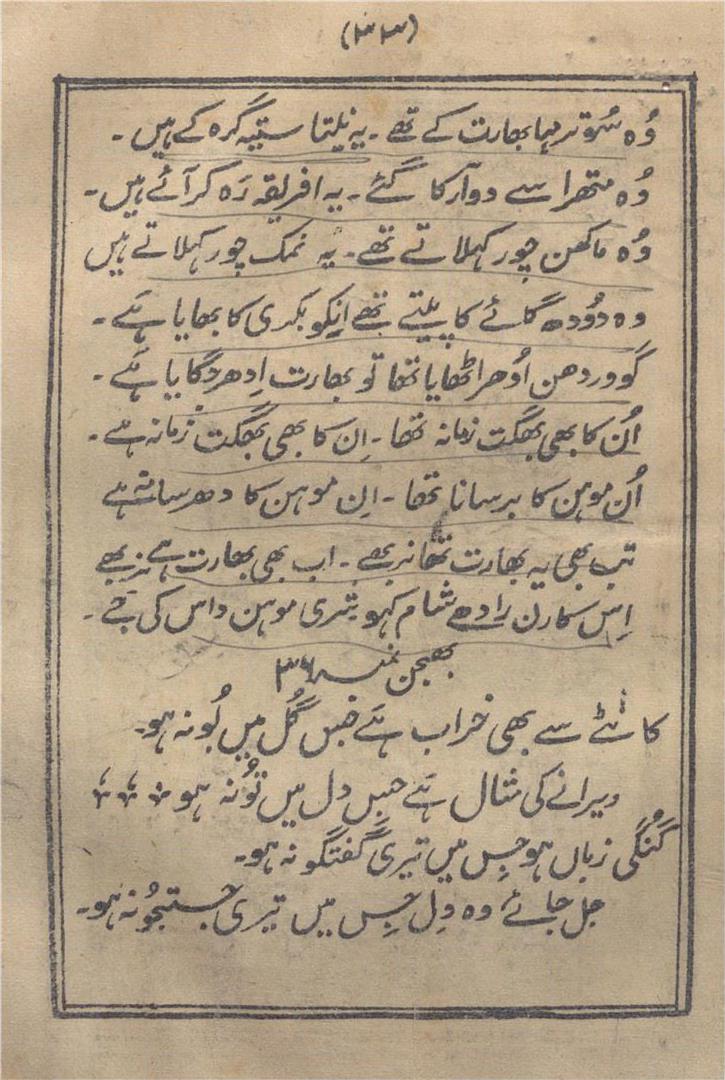 (۳۳)
وُہ سُوتر مہا بھارت کے تھے ۔ یہ نیتا ستیہ گرہ کے ہیں ۔
وُہ متھرا سے دوآرکا گئے ۔ یہ افریقہ رَہ کر آئے ہیں ۔
وُہ ماکھن چور کہلاتے تھے ۔ یہ نمک چور کہلاتے ہیں
وہ دُودھ گائے کا پیتے تھے اِنکو بکری کا بھایا ہَے ۔
گووردھن اُودھر اٹھایا تھا تو بھارت اِدھر جگایا ہَے ۔
اُن کا بھی بھگت زمانہ تھا ۔ اِن کا بھی بھگت زمانہ ہے ۔
اُن موہن کا برسانا تھا ۔ اِن موہن کا دھرسانہ ہے
تب بھی یہ بھارت تھا نربھے ۔ اب بھی بھارت ہے نربھے
اِس کارن رادھے شام کہو شری موہن داس کی جَے ۔
بھجن نمبر ۳۶
کانٹے سے بھی خراب ہَے جس گُل میں بُو نہ ہو ۔
ویرانے کی مثال ہَے جِس دل میں تُو نہ ہو
گُنگی زباں ہو جِس میں تیری گفتگو نہ ہو ۔
جل جائے وہ دِل جِس میں تیری جستجُو نہ ہو ۔